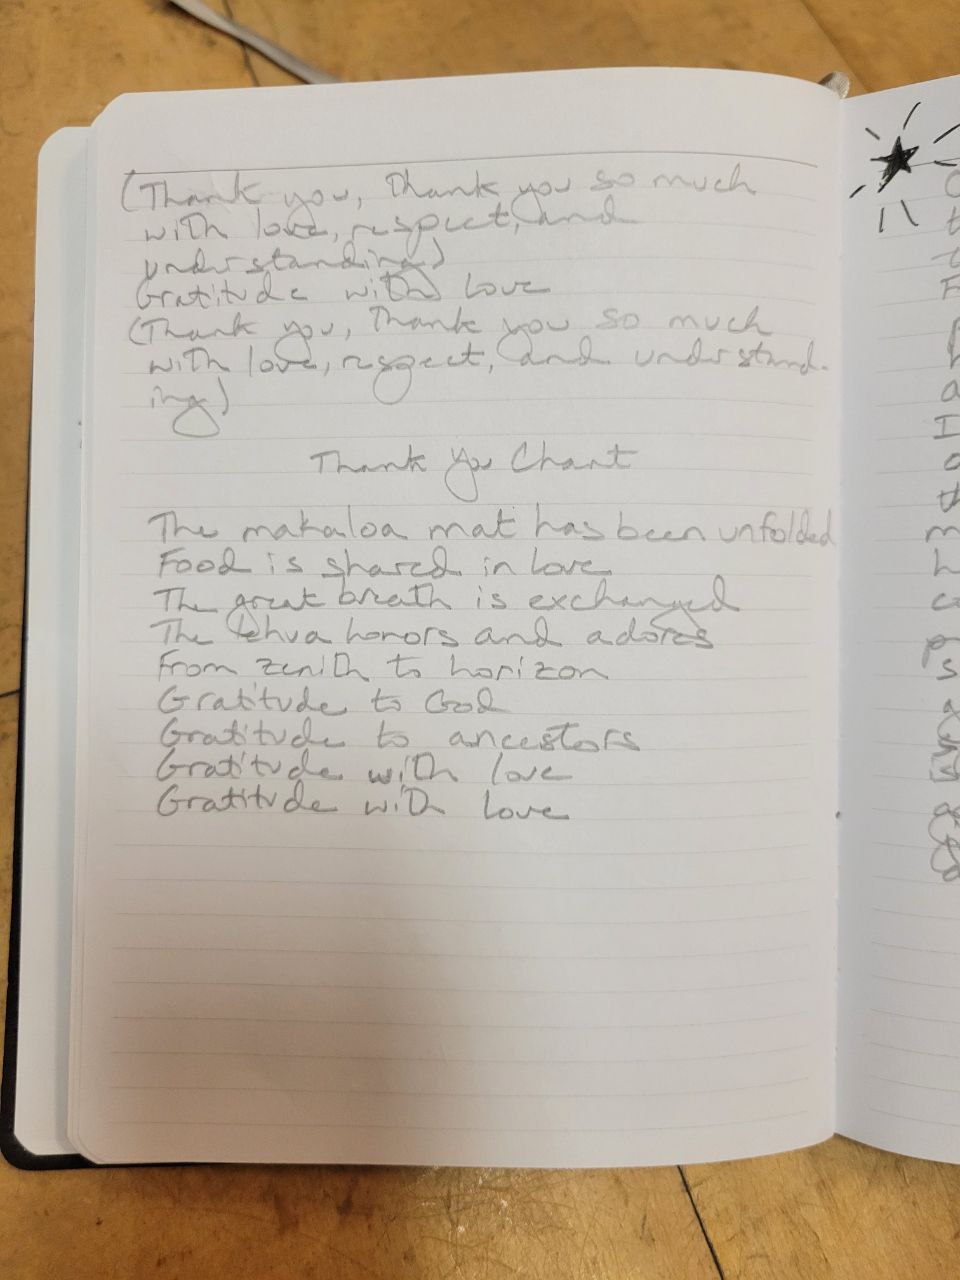 (Thank you, thank you so much
with love, respect, and
understanding)
Gratitude with Love
(Thank you, Thank you so much
with love, respect, and understand-
ing)
Thank You Chant
The makaloa mat has been unfolded
Food is shared in love
The great breath is exchanged
The lehua honors and adores
From zenith to horizon
Gratitude to God
Gratitude to ancestors
Gratitude with love
Gratitude with Love